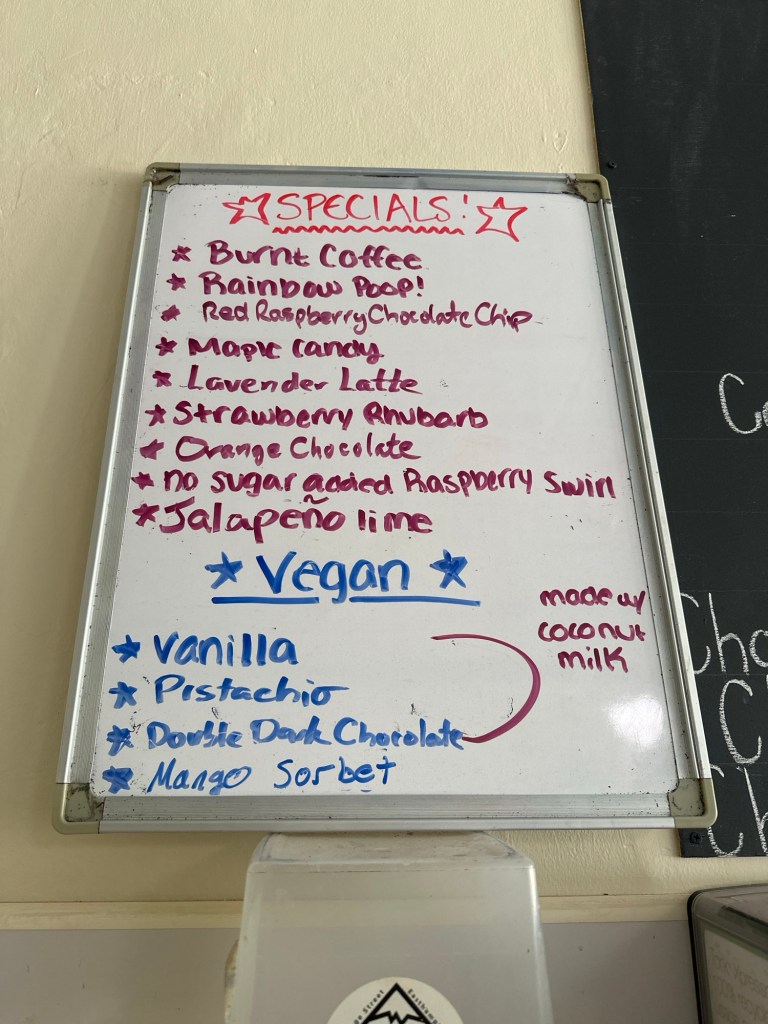 SPECIALS!
Burnt Coffee
Rainbow Poop!
Red Raspberry Chocolate Chip
Maple Candy
Lavender Latte
Strawberry Rhubarb
Orange Chocolate
no sugar added Raspberry Swirl
Jalapeño lime
Vegan
made w/
coconut
milk
Vanilla
Pistachio
Double Dark Chocolate
Mango Sorbet